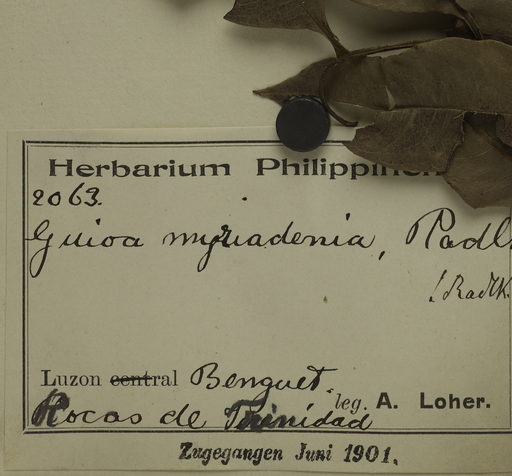 Herbarium Philippinen
2063.
Guioa myriadenia, Radlk
! Radlk
Luzon central Benguet.
leg. A. Loher.
Rocas de Trinidad
Zugegangen Juni 1901.